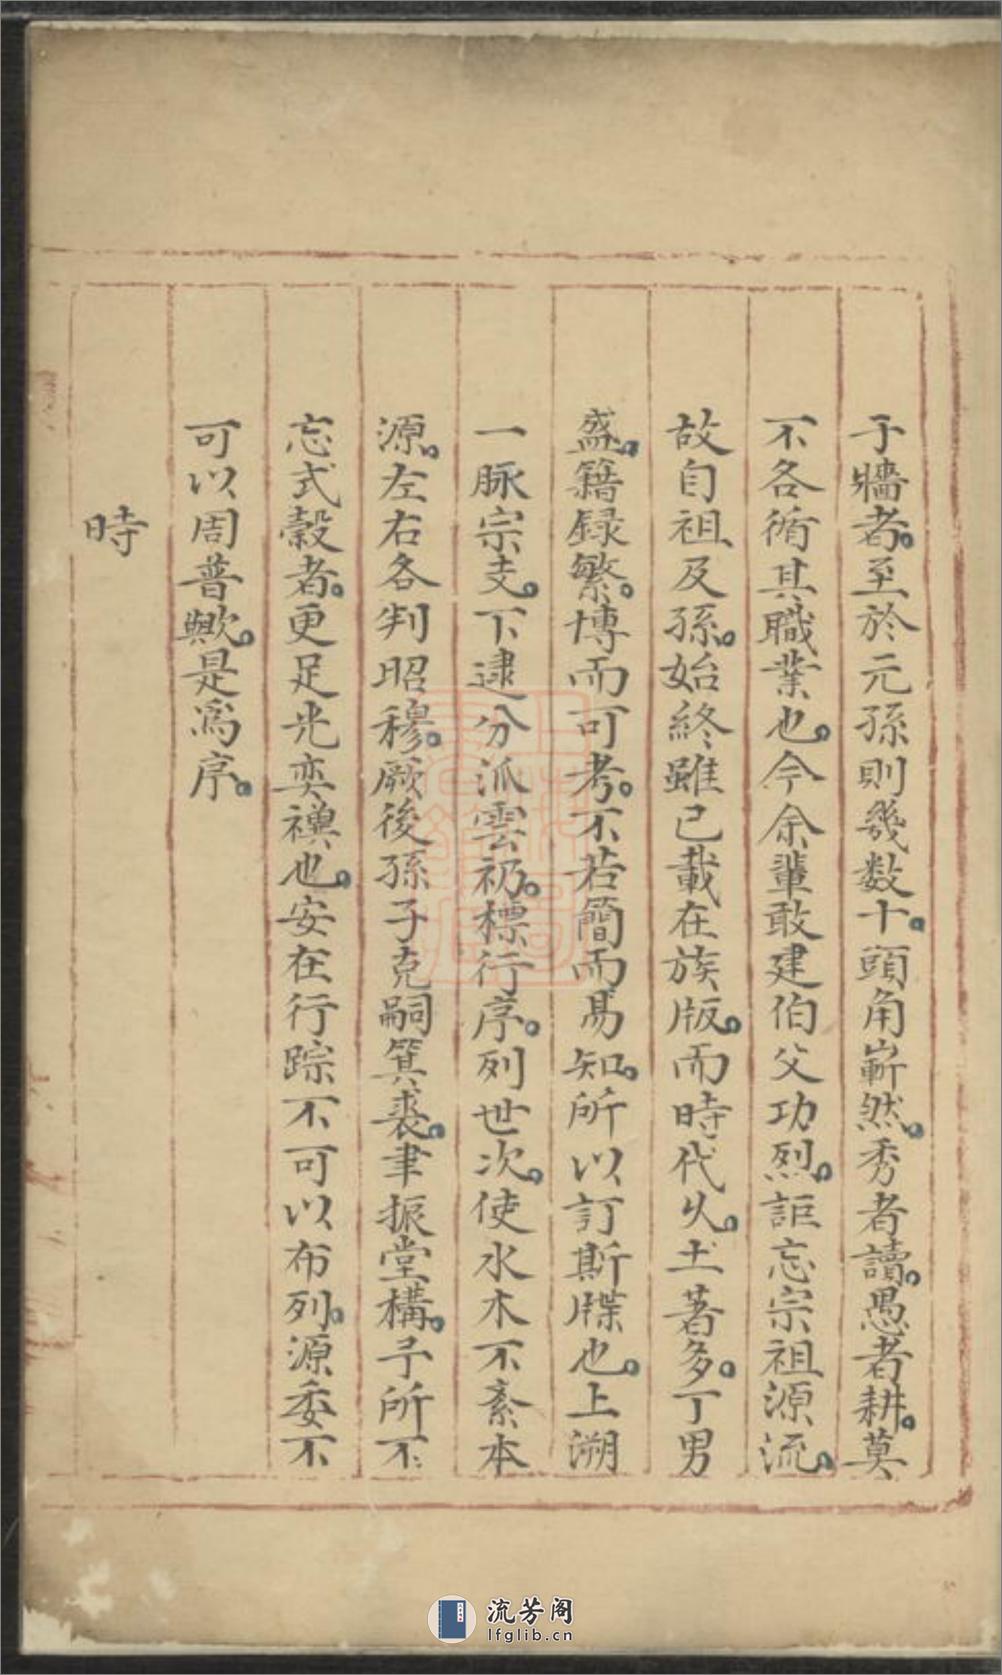 于牆者。至於元孫則幾数十。頭角嶄然。秀者讀。愚者耕。莫
不各循其職業也。今余輩敢建伯父功烈。詎忘宗祖源流。
故自祖及孫。始終雖已載在族版。而時代乆。土著多。丁男
盛。籍録繁。博而可考。不若簡而易知。所以訂斯牒也。上溯
一脉宗支。下逮分派雲礽。標行序。列世次。使水木不紊本
源。左右各判昭穆。厥後孫子克嗣箕裘。聿振堂構。予所不
忘式穀者。更足光奕禩也。安在行踪不可以布列。源委不
可以周普歟。是為序。
時
流芳阁
lfglib.cn